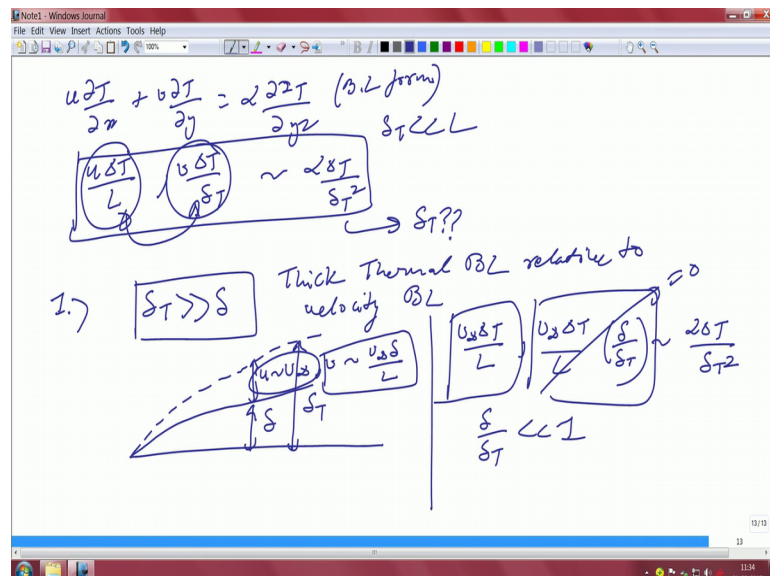 Note1 - Windows Journal
File Edit View Insert Actions Tools Help
100%
u ∂T/∂x + v ∂T/∂y = α ∂²T/∂y² (B.L form)
δ_T << L
uΔT/L , vΔT/δ_T ~ αΔT/δ_T²
→ δ_T??
1.) δ_T >> δ
Thick Thermal BL relative to
velocity BL
u ~ U∞
v ~ U∞δ/L
δ
δ_T
U∞ΔT/L , U∞ΔT/L (δ/δ_T) ~ αΔT/δ_T²
= 0
δ/δ_T << 1
13/13
13
11:34